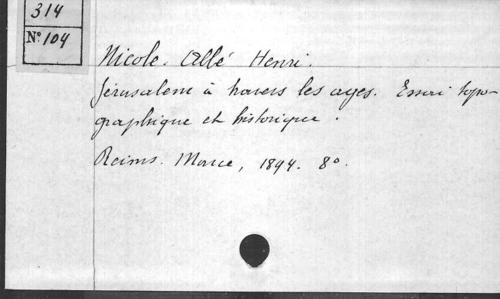 314
N° 104
Nicole. Abbé Henri.
Jérusalem à travers les ages. Essai topo-
graphique et historique.
Reims. Marce, 1894. 8°.